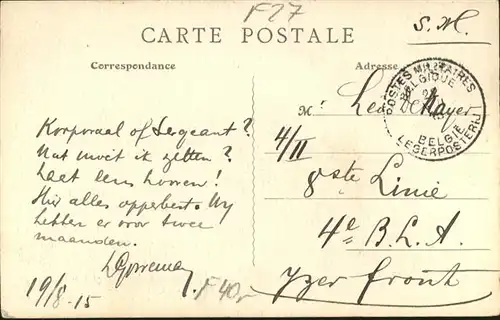 F27
S.M.
CARTE POSTALE
Correspondance
Adresse
POSTES MILITAIRES
BELGIQUE
BELGIE
LEGERPOSTERIJ
M.
Leo De
4/II
8ste Linie
4e B.L.A.
Yzer front
Korporaal of Sergeant?
Wat moet ik zetten?
Laat eens hooren!
Hier alles opperbest. Wy
hebben er over twee
maanden.
19/8-15
F40,-